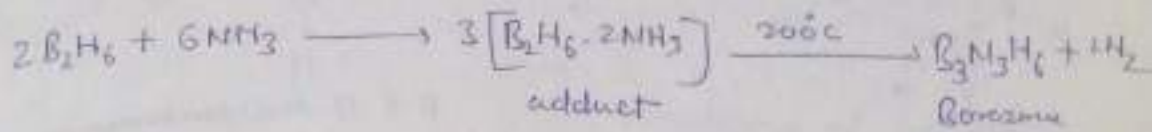 2B₂H₆ + 6NH₃ ⟶ 3[B₂H₆·2NH₃] ⟶ 200°C B₃N₃H₆ + 12H₂
adduct Borazine